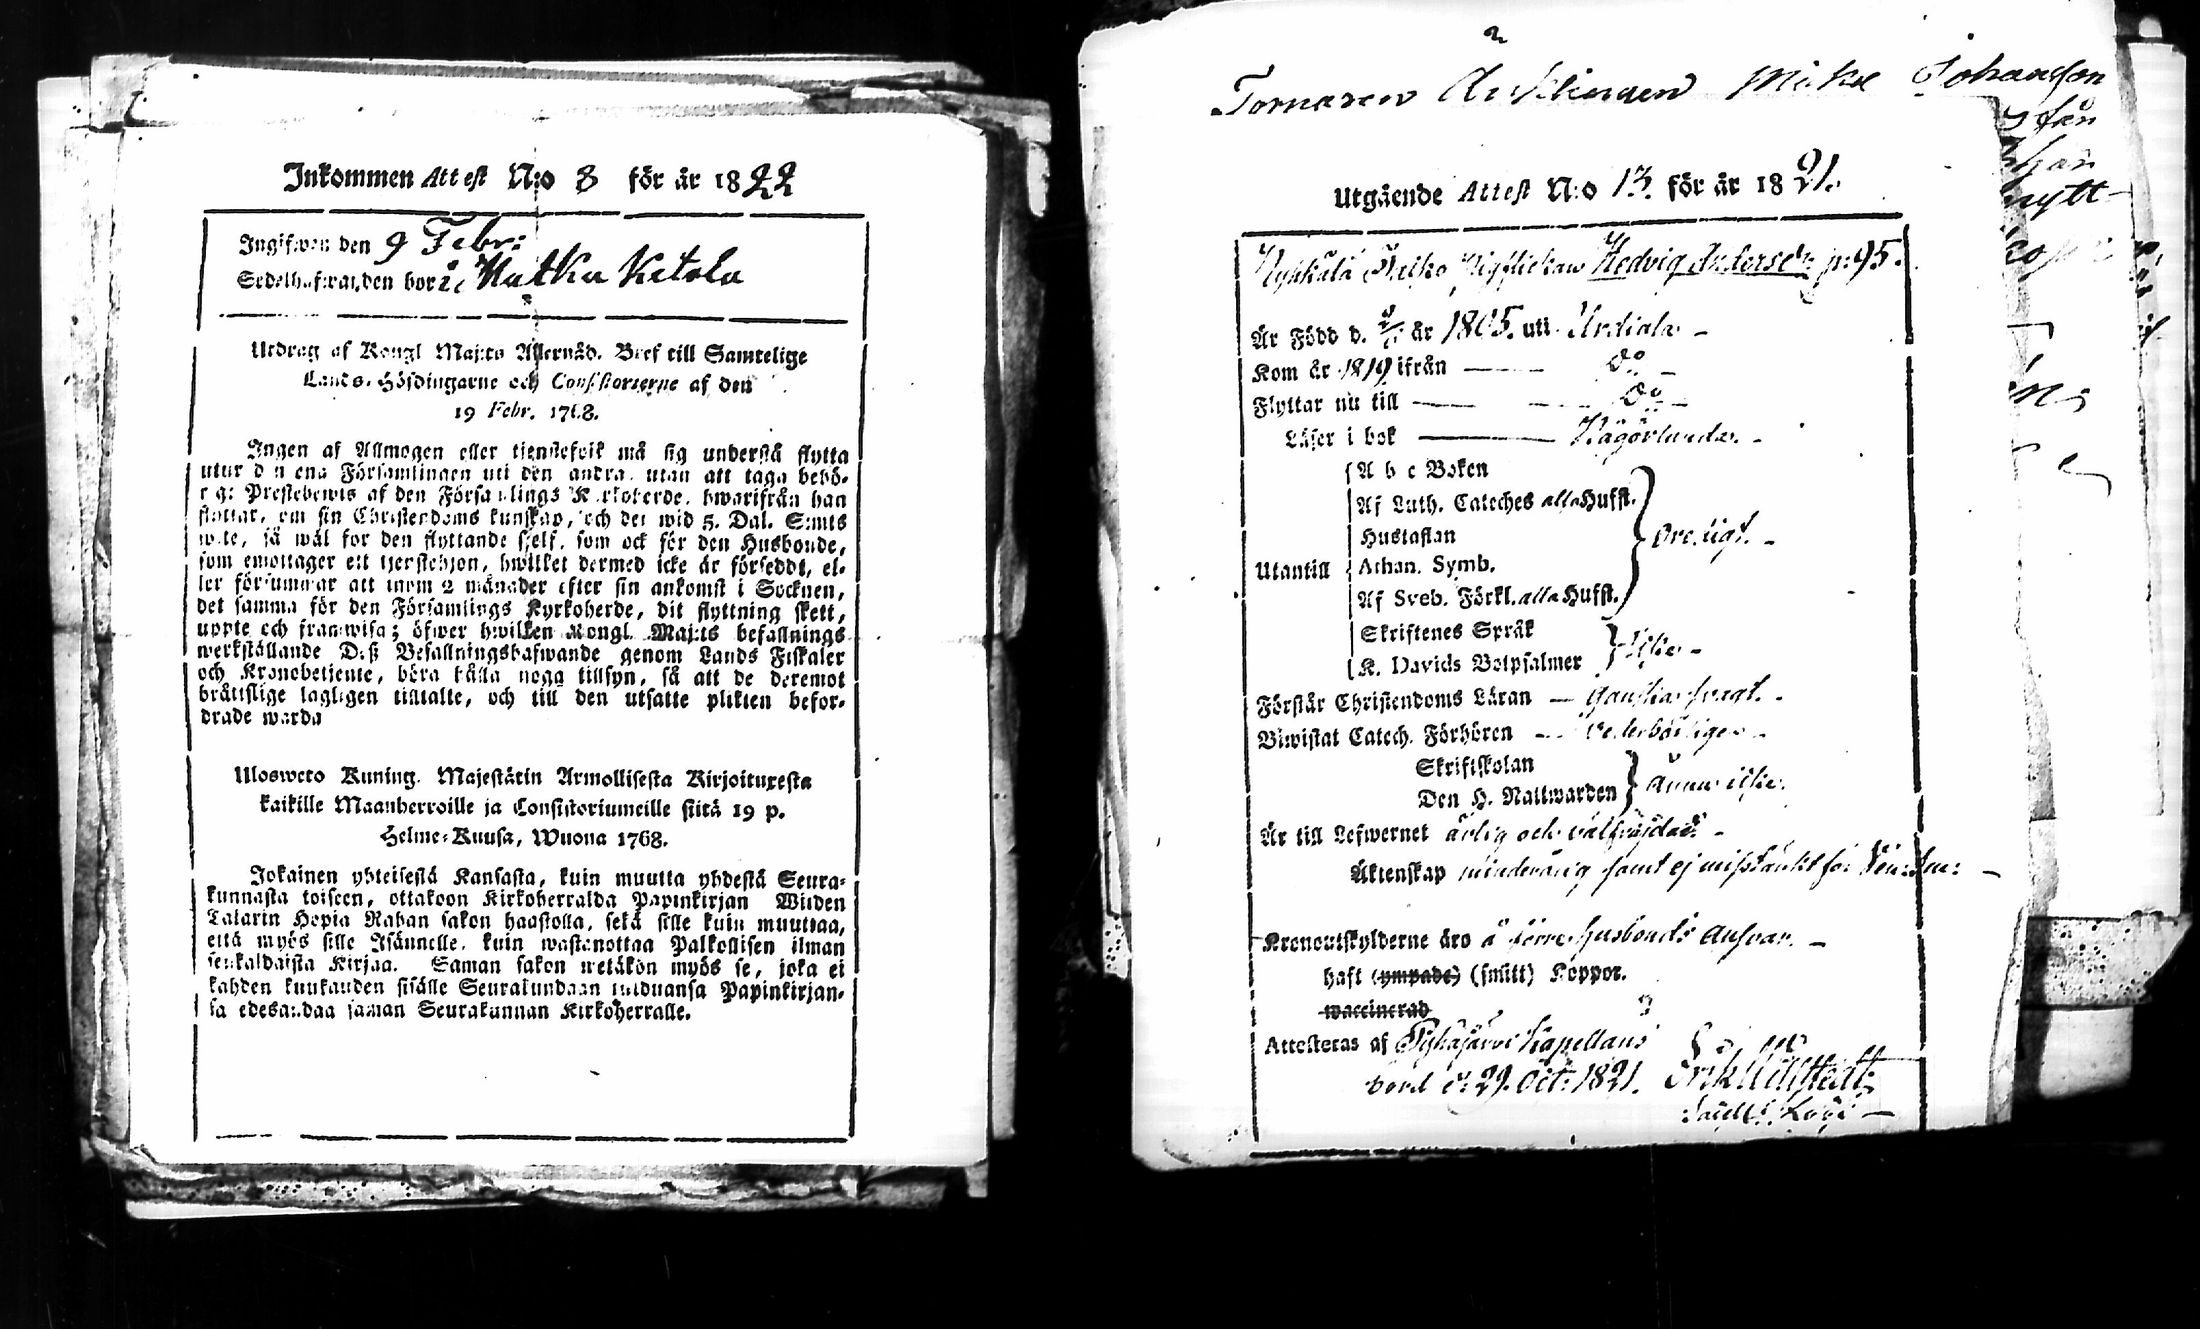 Inkommen Attest N:o 8 för år 1822
Ingifwen den 9 Febr:
Sedelhafwanden bor i Hutku Ketola
Utdrag af Kongl Maj:ts Allernåd. Bref till Samtelige
Lands-Höfdingarne och Consistorierne af den
19 Febr. 1768.
Ingen af Allmogen eller tjenstefolk må sig understå flytta
utur den ena Församlingen uti den andra, utan att taga behö-
rigt Prestebewis af den Församlings Kyrkoherde, hwarifrån han
flyttar, om sin Christendoms kunskap, och det wid 5. Dal. S:mts
wite, så wäl för den flyttande sjelf, som ock för den Husbonde,
som emottager ett tjenstehjon, hwilket dermed icke är försedt, el-
ler försummar att inom 2 månader efter sin ankomst i Socknen,
det samma för den Församlings Kyrkoherde, dit flyttning skett,
uppte och framwisa; öfwer hwilken Kongl. Maj:ts befallnings
werkställande Deß Befallningshafwande genom Lands Fiskaler
och Kronobetjente, böra hålla noga tillsyn, så att de deremot
bråttslige lagligen tilltalte, och till den utsatte plikten befor-
drade warda
Ulosweto Kuning. Majestätin Armollisesta Kirjoituxesta
kaikille Maanherroille ja Consistoriumeille siitä 19 p.
Helme-Kuusa, Wuona 1768.
Jokainen yhteisestä Kansasta, kuin muutta yhdestä Seura-
kunnasta toiseen, ottakoon Kirkoherralda Papinkirjan Wiiden
Talarin Hopia Rahan sakon haastolla, sekä sille kuin muuttaa,
että myös sille Isännelle, kuin wastanottaa Palkollisen ilman
senkaldaista Kirjaa. Saman sakon wetäkön myös se, joka ei
kahden kuukauden sisälle Seurakundaan tulduansa Papinkirjan-
sa edesandaa saman Seurakunnan Kirkoherralle.
Johansson
från
nytt
Utgående Attest N:o 13. för år 1821.
Hedvig Andersdr p: 95.
Är Född d. år 1805. uti Urdiala -
Kom år 1819 ifrån — Do -
Flyttar nu till — — Do -
Läser i bok —
A b c Boken
Af Luth. Cateches alla Hufst.
Hustaflan
Utantill Athan. Symb.
Af Sveb. Förkl. alla Hufst.
Skriftenes Språk
K. Davids Botpsalmer
Förstår Christendoms Läran — Ganska svagt. -
Biwistat Catech. Förhören — vederbörligen -
Skriftskolan
Den H. Nattwarden ännu icke.
Är till Lefwernet ärlig och välfräjdad. -
Äktenskap minderårig samt ej misstänkt för
Kronoutskylderne äro å förre husbonds ansvar. -
haft (ympade) (smitt) Koppor.
waccinerad
Attesteras af Kapellans
bord d. 29. Oct: 1821.